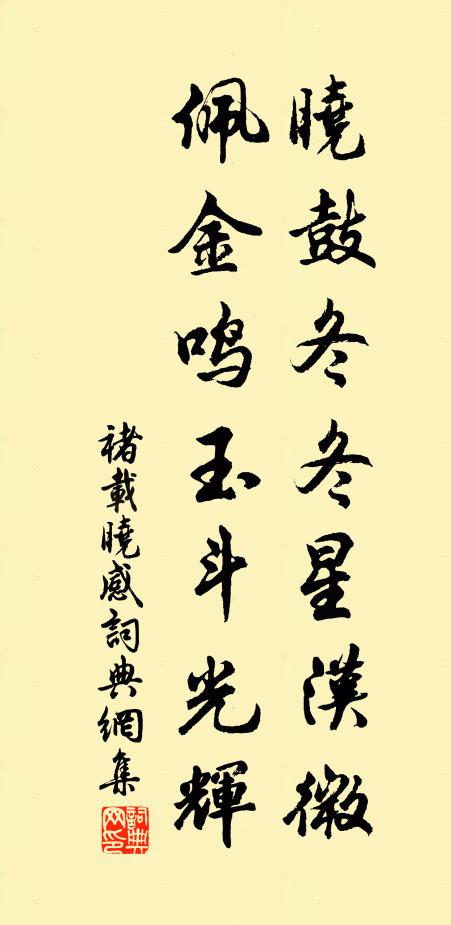 曉鼓冬冬星漢微
佩金鳴玉斗光輝
褚載曉感詞典網集
詞典網印